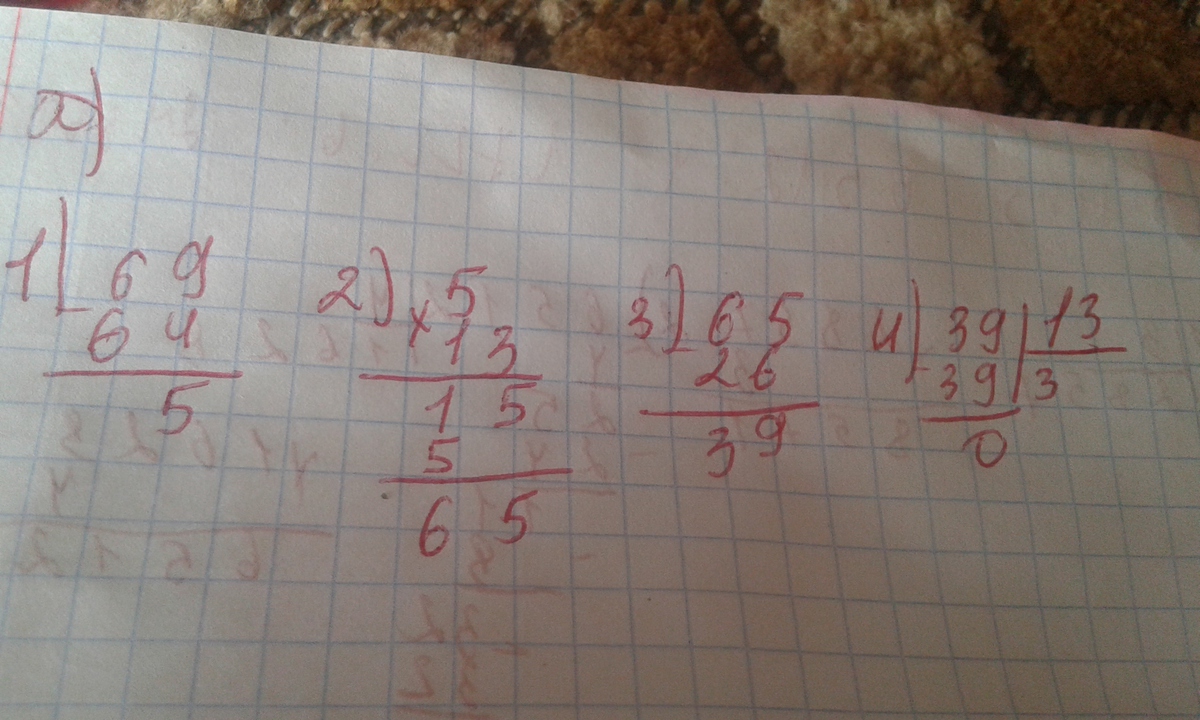 а)
1) 69
- 64
5
2) 5
× 13
15
5
65
3) 65
- 26
39
4) 39 | 13
- 39 | 3
0